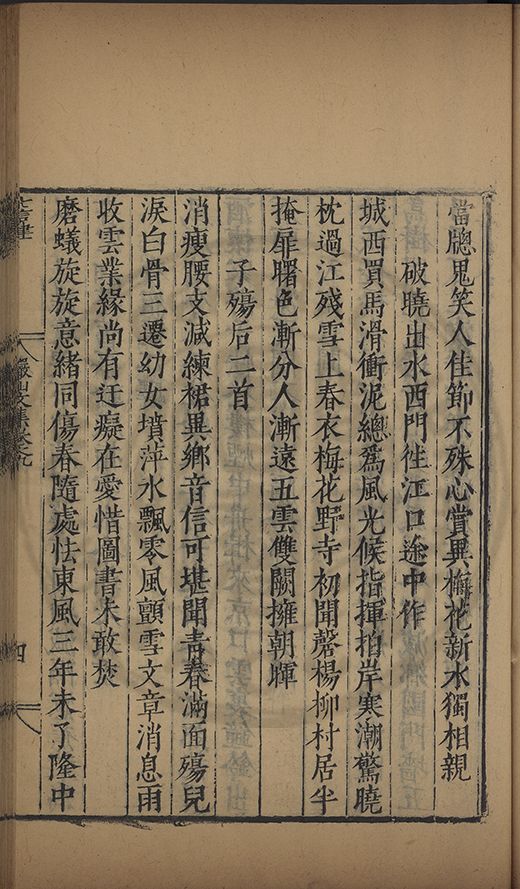 當牕鬼笑人佳節不殊心賞異梅花新水獨相親
破曉出水西門徃江口途中作
城西買馬滑衝泥總爲風光候指揮拍岸寒潮驚曉
枕過江殘雪上春衣梅花野寺初聞磬楊柳村居半
掩扉曙色漸分人漸遠五雲雙闕擁朝暉
子殤后二首
消瘦腰支減練裙異鄉音信可堪聞青春滿面殤兒
淚白骨三遷幼女墳萍水飄零風顫雪文章消息雨
收雲業緣尚有迂癡在愛惜圖書未敢焚
磨蟻旋旋意緒同傷春隨處怯東風三年未了隆中
四